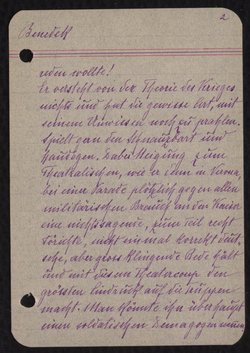 2
Benedek
reden wollte!
Er versteht von der Theorie des Krieges
nichts und hat die gewisse Art, mit
seinem Unwissen noch zu prahlen,
spielt gern den Schnauzbart und
Haudegen. Dabei Neigung zum
Theatralischen, wie er denn in Verona,
bei einer Parade plötzlich gegen allen
militärischen Brauch an den Kaiser
eine nichtssagende, zum Teil recht
törichte, nicht einmal korrekt deut-
sche, aber gross klingende Rede hält
und mit diesem Theatercoup den
grössten Eindruck auf die Truppen
macht. Man könnte ihn überhaupt
einen soldatischen Demagogen nennen